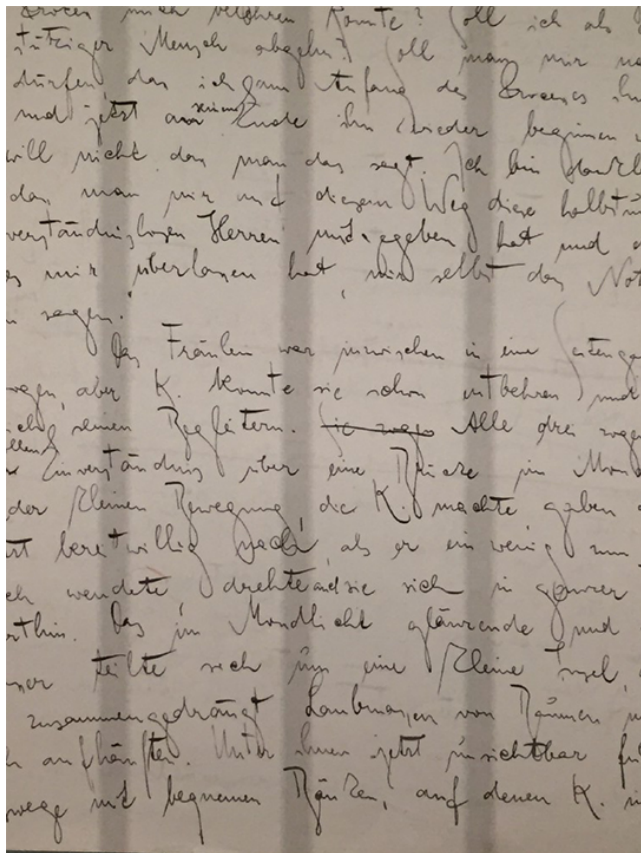 mich belehren konnte? Soll ich als
stütziger Mensch abgehn? Soll man mir
dürfen, dass ich am Anfang des Processes ihn
und jetzt an seinem Ende ihn wieder beginnen
will nicht dass man das sagt. Ich bin
dass man mir auf diesem Weg diese
verständnislosen Herren mitgegeben hat und
es mir überlassen hat, mir selbst das
sagen.
Das Fräulein war inzwischen in eine
aber K. konnte sie schon entbehren und
seinen Begleitern. Alle drei
Einverständnis über eine Brücke im
der kleinen Bewegung, die K. machte gaben
bereitwillig nach, als er ein wenig zum
wendete, drehten sie sich in ganzer
orthin. Das im Mondlicht glänzende und
teilte sich um eine kleine Insel,
zusammengedrängt Laubmassen von Bäumen
aufhäuften. Unter ihnen jetzt unsichtbar
wege mit bequemen Bänken, auf denen K.